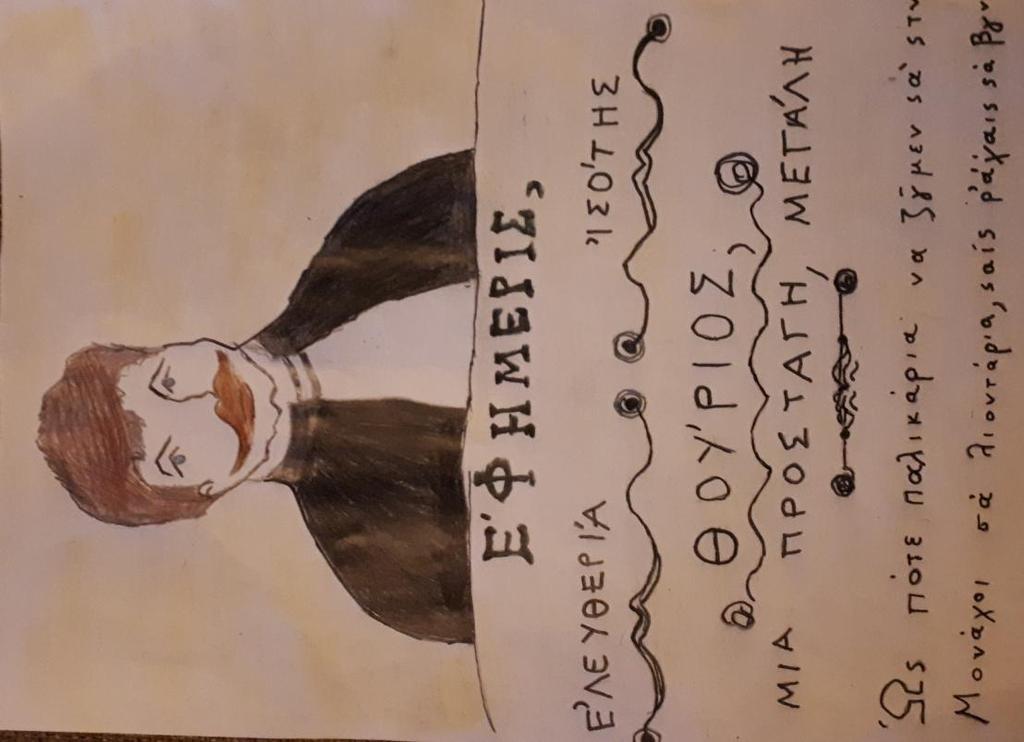 ἘΦΗΜΕΡΙΣ,
ἘΛΕΥΘΕΡΊΑ ἸΣΌΤΗΣ
ΘΟΎΡΙΟΣ,
ΜΙΑ ΠΡΟΣΤΑΓΗ, ΜΕΓΆΛΗ
Ὡς πότε παλικάρια να ζῦμεν
Μονάχοι σά λιοντάρια, ῥάχαις